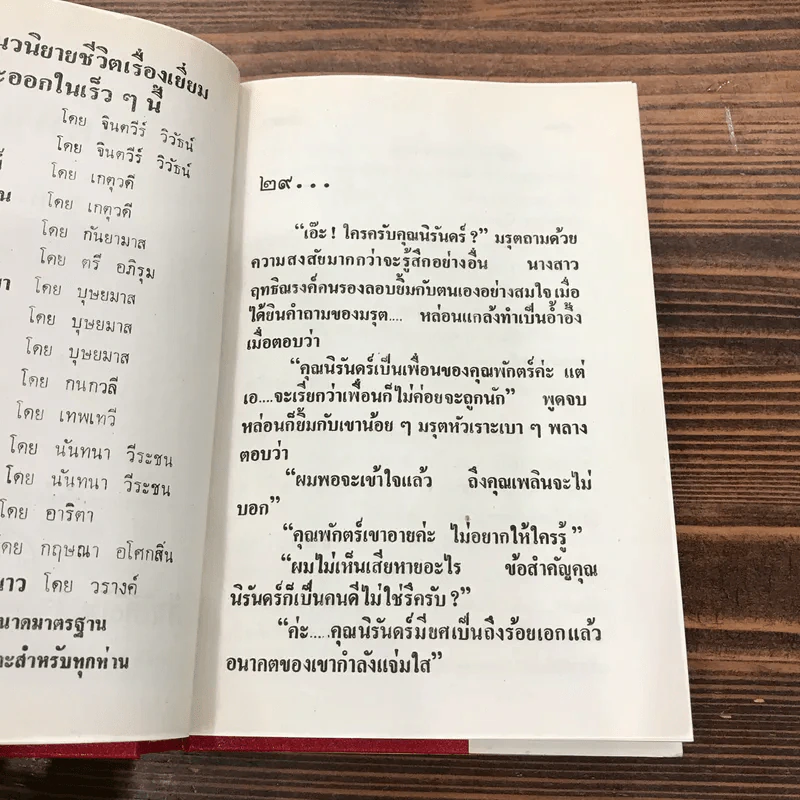 นวนิยายชีวิตเรื่องเยี่ยม
จะออกในเร็ว ๆ นี้
โดย จินตวีร์ วิวัธน์
โดย จินตวีร์ วิวัธน์
โดย เกตุวดี
โดย เกตุวดี
โดย กันยามาส
โดย ตรี อภิรุม
โดย บุษยมาส
โดย บุษยมาส
โดย บุษยมาส
โดย กนกวลี
โดย เทพเทวี
โดย นันทนา วีระชน
โดย นันทนา วีระชน
โดย อาริตา
โดย กฤษณา อโศกสิน
นาว โดย วรางค์
นาดมาตรฐาน
ะสำหรับทุกท่าน
๒๙...
“เอ๊ะ ! ใครครับคุณนิรันดร์ ?” มรุตถามด้วย
ความสงสัยมากกว่าจะรู้สึกอย่างอื่น นางสาว
ฤทธิณรงค์กนรองลอบยิ้มกับตนเองอย่างสมใจ เมื่อ
ได้ยินคำถามของมรุต.... หล่อนแกล้งทำเป็นอ้ำอึ้ง
เมื่อตอบว่า
“คุณนิรันดร์เป็นเพื่อนของคุณพักตร์ค่ะ แต่
เอ....จะเรียกว่าเพื่อนก็ไม่ค่อยจะถูกนัก” พูดจบ
หล่อนก็ยิ้มกับเขาน้อย ๆ มรุตหัวเราะเบา ๆ พลาง
ตอบว่า
“ผมพอจะเข้าใจแล้ว ถึงคุณเพลินจะไม่
บอก”
“คุณพักตร์เขาอายค่ะ ไม่อยากให้ใครรู้ ”
“ผมไม่เห็นเสียหายอะไร ข้อสำคัญคุณ
นิรันดร์ก็เป็นคนดีไม่ใช่รึครับ ?”
“ค่ะ.....คุณนิรันดร์มียศเป็นถึงร้อยเอกแล้ว
อนาคตของเขากำลังแจ่มใส”